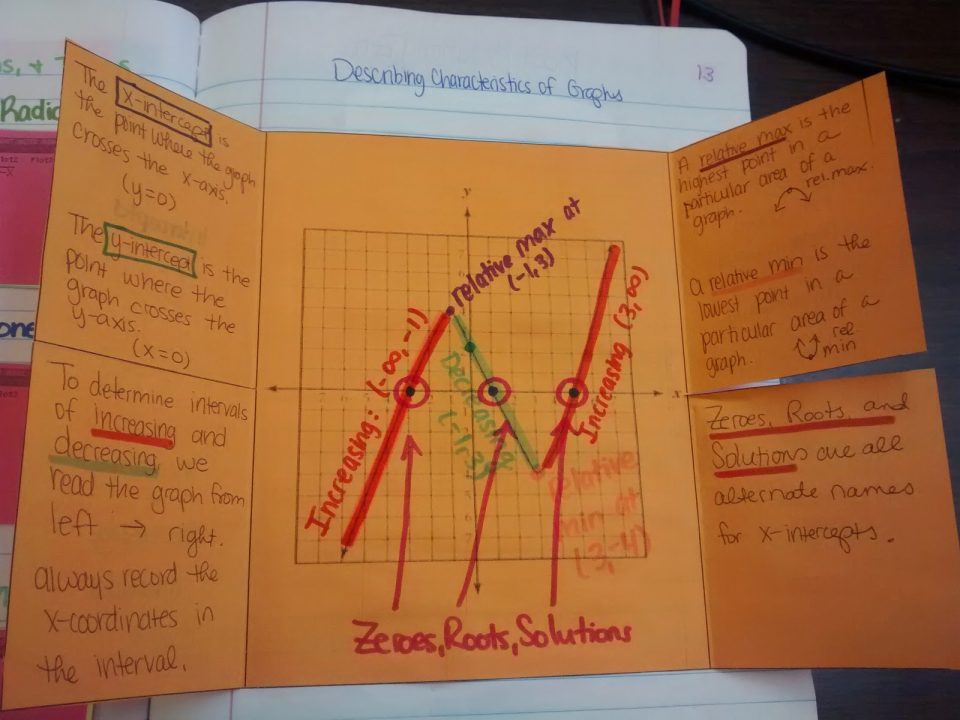 Describing Characteristics of Graphs
13
s, +
Radic
Plot2 Plot3
The x-intercept is
the point where the graph
crosses the x-axis.
(y=0)
The y-intercept is the
point where the
graph crosses the
y-axis.
(x=0)
To determine intervals
of increasing and
decreasing, we
read the graph from
left → right.
always record the
x-coordinates in
the interval.
y
x
relative max at
(-1,3)
Increasing: (-∞,-1)
Decreasing
(-1,3)
Increasing (3,∞)
relative
min at
(3,-4)
Zeroes, Roots, Solutions
A relative max is the
highest point in a
particular area of a
graph. rel.max.
A relative min is the
lowest point in a
particular area of a
graph. rel
min
Zeroes, Roots, and
Solutions are all
alternate names
for x-intercepts.